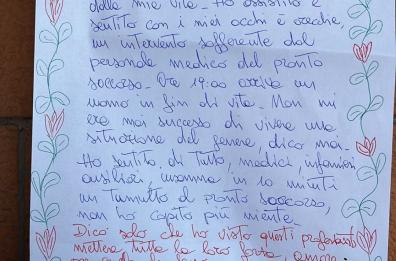 della mia vita. Ho assistito e
sentito con i miei occhi e orecchie,
un intervento sofferente del
personale medico del pronto
soccorso. Ore 19:00 arriva un
uomo in fin di vita. Non mi
era mai successo di vivere una
situazione del genere, dico mai.
Ho sentito di tutto, medici, infermieri
ausiliari, insomma in 10 minuti
un tumulto al pronto soccorso,
non ho capito più niente.
Dico solo che ho visto questi professionisti
mettere tutta la loro forza, amore